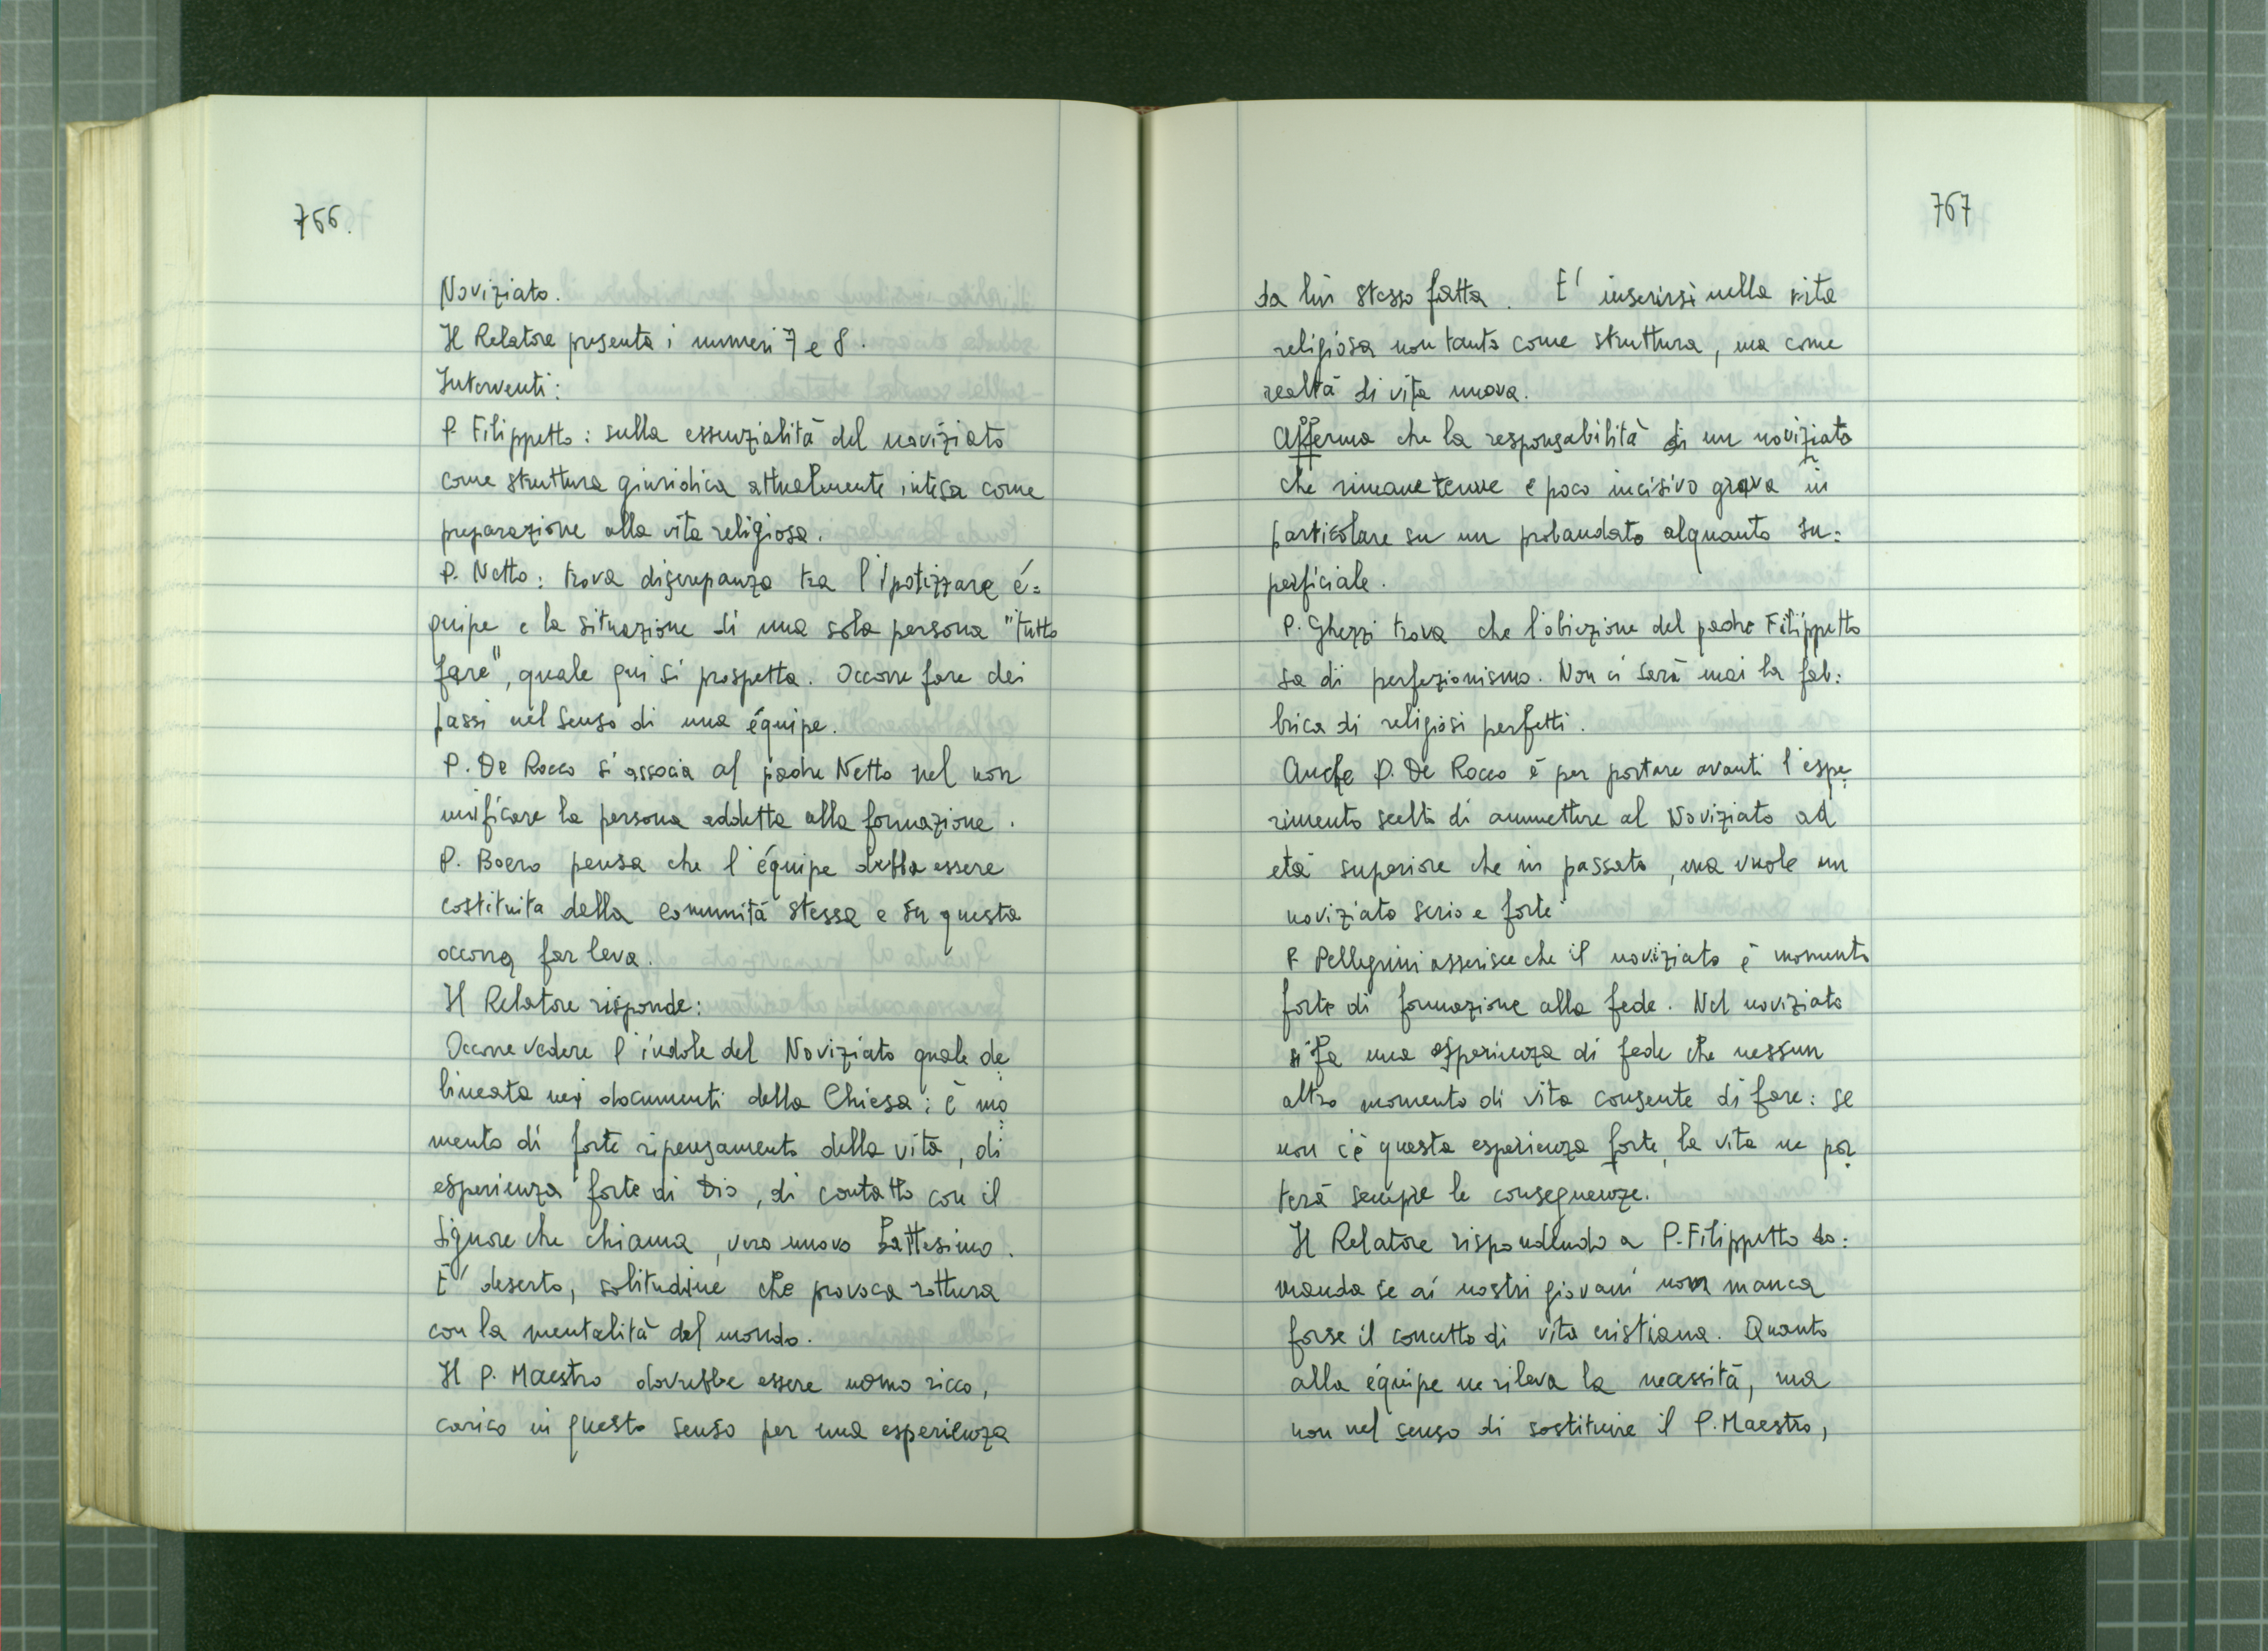 766.
Noviziato.
Il Relatore presenta i numeri 7 e 8.
Interventi:
P. Filippetto: sulla essenzialità del noviziato
come struttura giuridica attualmente intesa come
preparazione alla vita religiosa.
P. Netto: trova discrepanza tra l'ipotizzare é=
quipe e la situazione di una sola persona "tutto
fare", quale qui si prospetta. Occorre fare dei
passi nel senso di una équipe.
P. De Rocco si associa al padre Netto nel non
unificare la persona addetta alla formazione.
P. Boero pensa che l'équipe debba essere
costituita dalla comunità stessa e su questa
occorre far leva.
Il Relatore risponde:
Occorre vedere l'indole del Noviziato quale de
lineata nei documenti della Chiesa: è mo
mento di forte ripensamento della vita, di
esperienza forte di Dio, di contatto con il
Signore che chiama, vero nuovo Battesimo.
E' deserto, solitudine che provoca rottura
con la mentalità del mondo.
Il P. Maestro dovrebbe essere uomo ricco,
carico in questo senso per una esperienza
767
da lui stesso fatta. E' inserirsi nella vita
religiosa non tanto come struttura, ma come
realtà di vita nuova.
Afferma che la responsabilità di un noviziato
che rimane tenue e poco incisivo grava in
particolare su un probandato alquanto su:
perficiale.
P. Ghezzi trova che l'obiezione del padre Filippetto
sa di perfezionismo. Non ci sarà mai la fab:
brica di religiosi perfetti.
Anche P. De Rocco è per portare avanti l'espe
rimento scelto di ammettere al Noviziato ad
età superiore che in passato, ma vuole un
noviziato serio e forte.
P. Pellegrini asserisce che il noviziato è momento
forte di formazione alla fede. Nel noviziato
si fa una esperienza di fede che nessun
altro momento di vita consente di fare: se
non c'è questa esperienza forte, la vita ne por
terà sempre le conseguenze.
Il Relatore rispondendo a P. Filippetto do:
manda se ai nostri giovani non manca
forse il concetto di vita cristiana. Quanto
alla équipe ne rileva la necessità, ma
non nel senso di sostituire il P. Maestro,